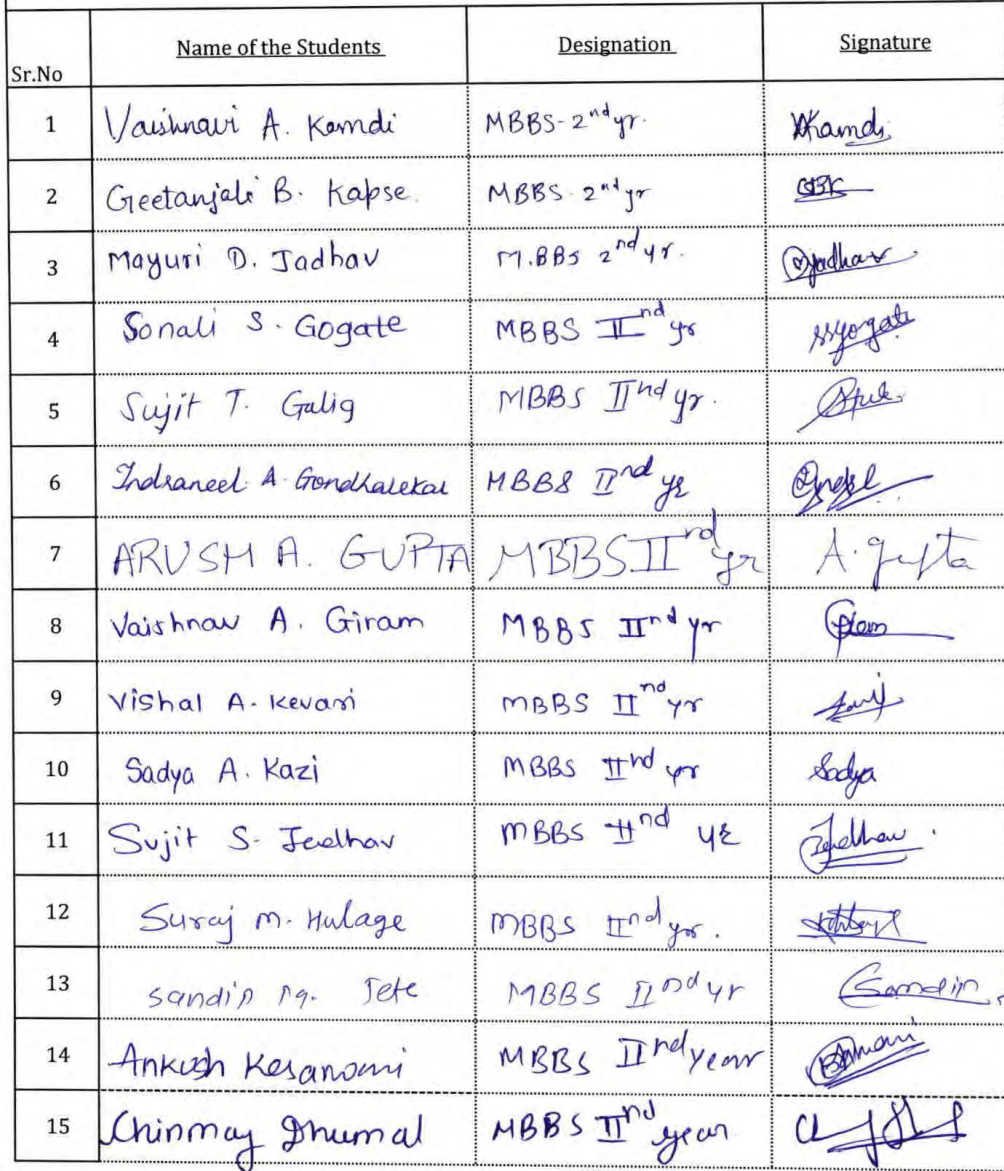 Sr.No Name of the Students Designation Signature
1 Vaishnavi A. Kamdi MBBS-2nd yr. VKamdi
2 Geetanjali B. Kapse. MBBS-2nd yr GBK
3 Mayuri D. Jadhav M.BBS 2nd yr. Jadhav
4 Sonali S. Gogate MBBS IInd yr ssgogate
5 Sujit T. Galig MBBS IInd yr.
6 Indraneel A. Gondhalekar MBBS IInd yr
7 ARUSH A. GUPTA MBBS IInd yr A. gupta
8 Vaishnav A. Giram MBBS IInd yr
9 Vishal A. Kevari MBBS IInd yr
10 Sadya A. Kazi MBBS IInd yr Sadya
11 Sujit S. Jadhav MBBS IInd yr
12 Suraj M. Hulage MBBS IInd yr.
13 Sandip M. Tete MBBS IInd yr Sandip
14 Ankush MBBS IInd year
15 Chinmay Dhumal MBBS IInd year